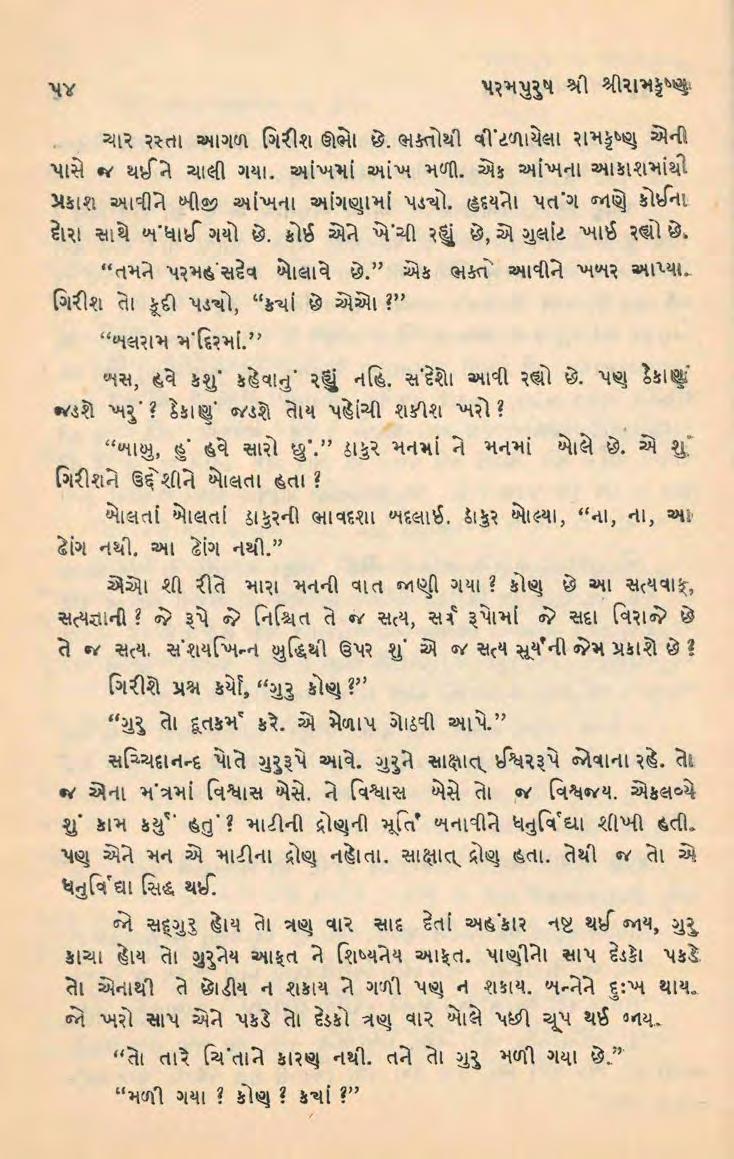 ૫૪ પરમપુરુષ શ્રી શ્રીરામકૃષ્ણ
ચાર રસ્તા આગળ ગિરીશ ઊભો છે. ભક્તોથી વીંટળાયેલા રામકૃષ્ણ એની
પાસે જ થઈને ચાલી ગયા. આંખમાં આંખ મળી. એક આંખના આકાશમાંથી
પ્રકાશ આવીને બીજી આંખના આંગણામાં પડ્યો. હૃદયનો પતંગ જાણે કોઈના
દોરા સાથે બંધાઈ ગયો છે. કોઈ એને ખેંચી રહ્યું છે, એ ગુલાંટ ખાઈ રહ્યો છે.
“તમને પરમહંસદેવ બોલાવે છે.” એક ભક્તે આવીને ખબર આપ્યા.
ગિરીશ તો કૂદી પડ્યો, “ક્યાં છે એઓ ?”
“બલરામ મંદિરમાં.”
બસ, હવે કશું કહેવાનું રહ્યું નહિ. સંદેશો આવી રહ્યો છે. પણ ઠેકાણું
જડશે ખરું ? ઠેકાણું જડશે તોય પહોંચી શકીશ ખરો ?
“બાબુ, હું હવે સારો છું.” ઠાકુર મનમાં ને મનમાં બોલે છે. એ શું
ગિરીશને ઉદ્દેશીને બોલતા હતા ?
બોલતાં બોલતાં ઠાકુરની ભાવદશા બદલાઈ. ઠાકુર બોલ્યા, “ના, ના, આ
ઢોંગ નથી. આ ઢોંગ નથી.”
એઓ શી રીતે મારા મનની વાત જાણી ગયા ? કોણ છે આ સત્યવાક્,
સત્યજ્ઞાની ? જે રૂપે જે નિશ્ચિત તે જ સત્ય, સર્વ રૂપોમાં જે સદા વિરાજે છે
તે જ સત્ય. સંશયખિન્ન બુદ્ધિથી ઉપર શું એ જ સત્ય સૂર્યની જેમ પ્રકાશે છે ?
ગિરીશે પ્રશ્ન કર્યો, “ગુરુ કોણ ?”
“ગુરુ તો દૂતકર્મ કરે. એ મેળાપ ગોઠવી આપે.”
સચ્ચિદાનન્દ પોતે ગુરુરૂપે આવે. ગુરુને સાક્ષાત્ ઈશ્વરરૂપે જોવાના રહે. તો
જ એના મંત્રમાં વિશ્વાસ બેસે. ને વિશ્વાસ બેસે તો જ વિશ્વજય. એકલવ્યે
શું કામ કર્યું હતું ? માટીની દ્રોણની મૂર્તિ બનાવીને ધનુર્વિદ્યા શીખી હતી.
પણ એને મન એ માટીના દ્રોણ નહોતા. સાક્ષાત્ દ્રોણ હતા. તેથી જ તો એ
ધનુર્વિદ્યા સિદ્ધ થઈ.
જો સદ્ગુરુ હોય તો ત્રણ વાર સાદ દેતાં અહંકાર નષ્ટ થઈ જાય, ગુરુ
કાચા હોય તો ગુરુનેય આફત ને શિષ્યનેય આફત. પાણીનો સાપ દેડકો પકડે
તો એનાથી તે છોડીય ન શકાય ને ગળી પણ ન શકાય. બન્નેને દુઃખ થાય.
જો ખરો સાપ એને પકડે તો દેડકો ત્રણ વાર બોલે પછી ચૂપ થઈ જાય.
“તો તારે ચિંતાને કારણ નથી. તને તો ગુરુ મળી ગયા છે.”
“મળી ગયા ? કોણ ? ક્યાં ?”